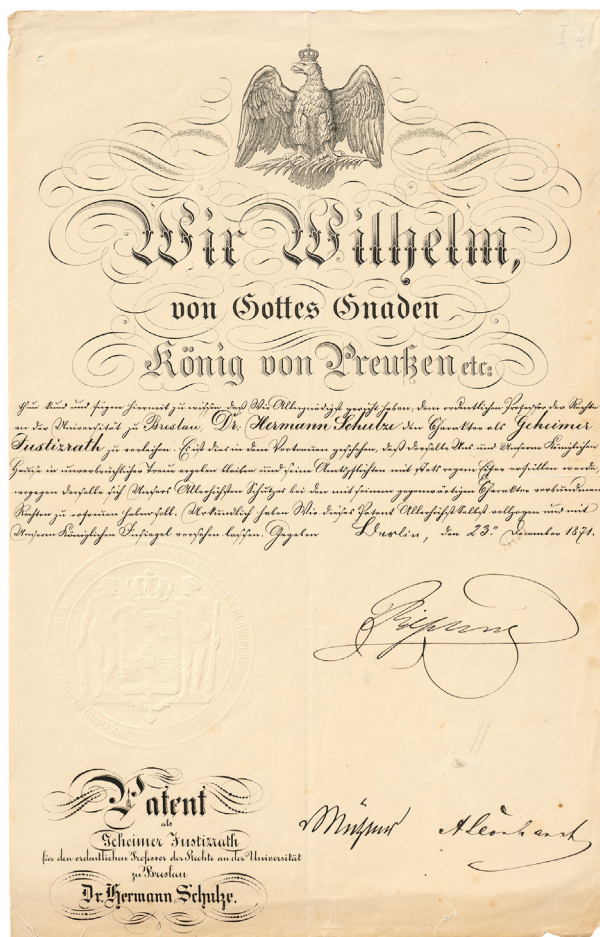 Wir Wilhelm,
von Gottes Gnaden
König von Preußen etc:
thun kund und fügen hiermit zu wissen, daß Wir Allergnädigst geruht haben, dem ordentlichen Professor der Rechte
an der Universität zu Breslau, Dr. Hermann Schulze den Charakter als Geheimer
Justizrath zu verleihen. Es ist dies in dem Vertrauen geschehen, daß derselbe Uns und Unserm Königlichen
Hause in unverbrüchlicher Treue ergeben bleiben und seine Amtspflichten mit stets regem Eifer erfüllen werde,
wogegen derselbe sich Unsers Allerhöchsten Schutzes bei den mit seinem gegenwärtigen Charakter verbundenen
Rechten zu erfreuen haben soll. Urkundlich haben Wir dieses Patent Allerhöchst Selbst vollzogen und mit
Unserm Königlichen Insiegel versehen lassen. Gegeben Berlin, den 23. Dezember 1871.
Patent
als
Geheimer Justizrath
für den ordentlichen Professor der Rechte an der Universität
zu Breslau
Dr. Hermann Schulze.